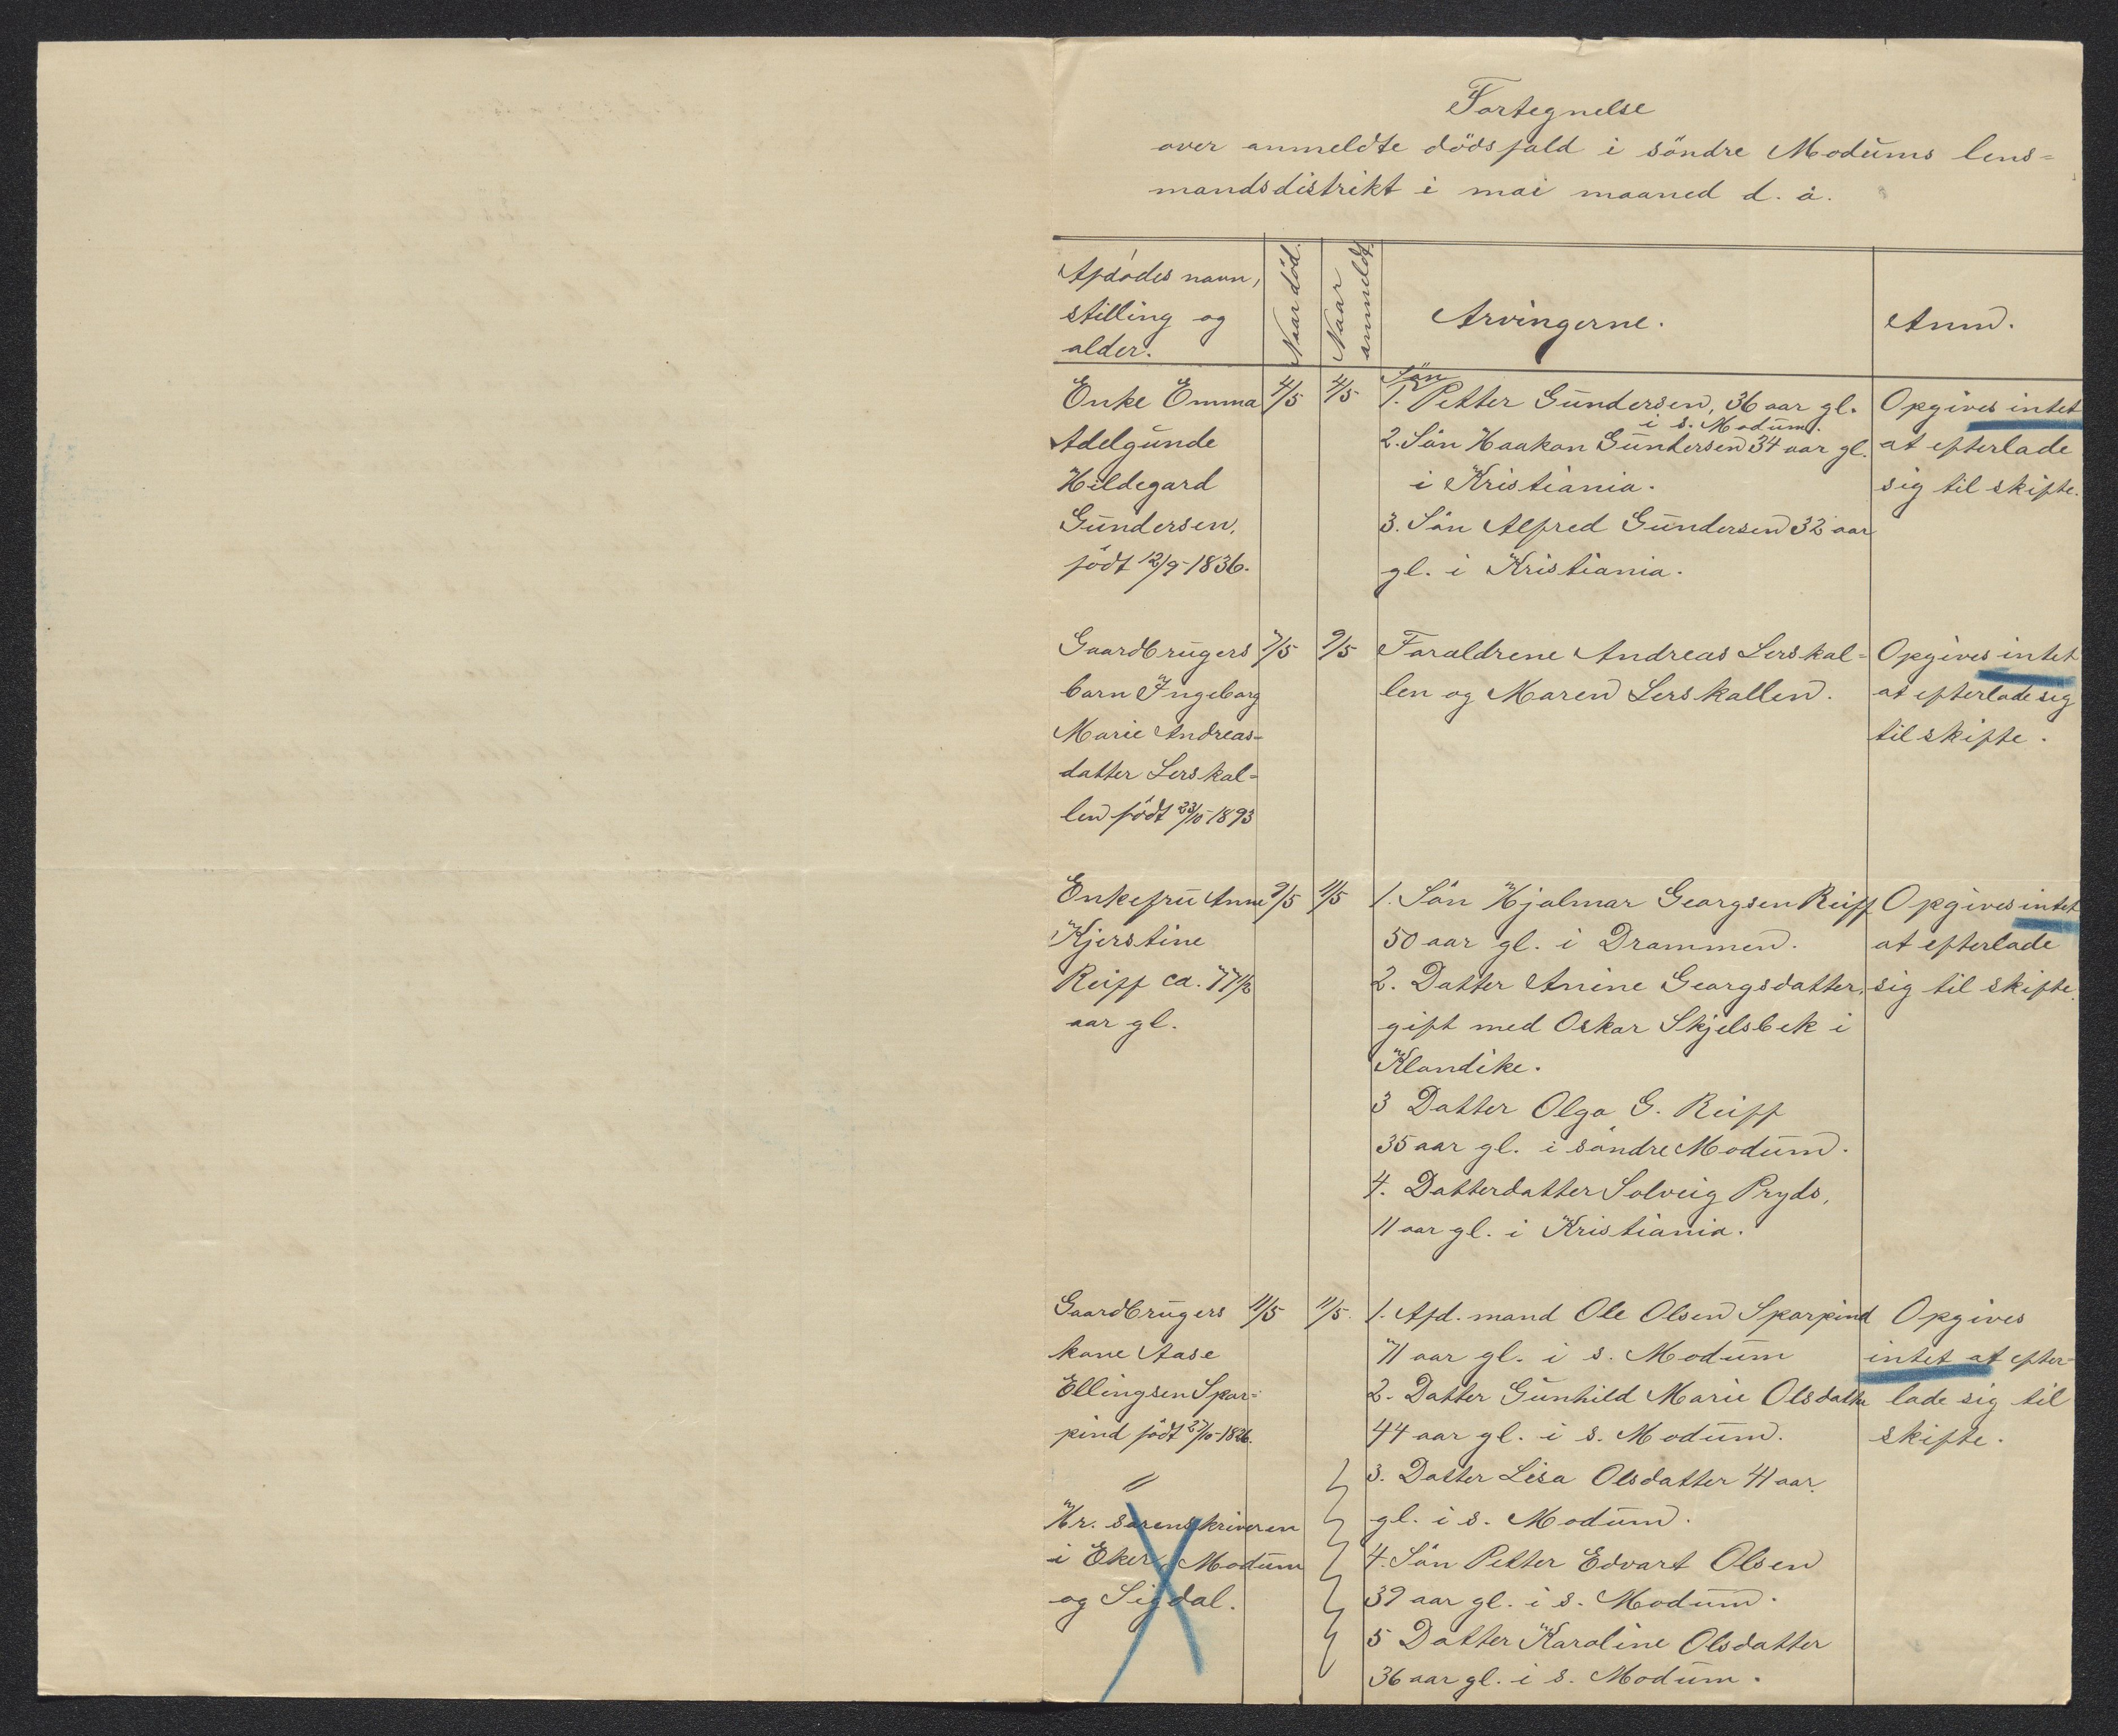 Fortegnelse
over anmeldte dödsfald i söndre Modums lens=
mandsdistrikt i mai maaned d. å.
Afdödes navn,
stilling og
alder.
Naar död.
Naar
anmeldt.
Arvingerne.
Anm.
Enke Emma
Adelgunde
Hildegard
Gundersen,
födt 12/9-1836.
4/5
4/5
Sön
1. Petter Gundersen, 36 aar gl.
i s. Modum.
2. Sön Haakon Gundersen 34 aar gl.
i Kristiania.
3. Sön Alfred Gundersen 32 aar
gl. i Kristiania.
Opgives intet
at efterlade
sig til skifte.
Gaardbrugers
barn Ingeborg
Marie Andreas=
datter Lerskal=
len födt 23/10-1893
7/5
9/5
Forældrene Andreas Lerskal=
len og Maren Lerskallen.
Opgives intet
at efterlade sig
til skifte.
Enkefru Anne
Kjerstine
Reiff ca. 77 1/2
aar gl.
9/5
11/5
1. Sön Hjalmar Georgsen Reiff
50 aar gl. i Drammen.
2. Datter Anine Georgsdatter,
gift med Oskar Skjelsbek i
Klondike.
3 Datter Olga G. Reiff
35 aar gl. i söndre Modum.
4. Datterdatter Solveig Pryds,
11 aar gl. i Kristiania.
Opgives intet
at efterlade
sig til skifte.
Gaardbrugers
kone Aase
Ellingsen Spor=
pind födt 27/10-1826.
11/5
11/5.
1. Afd. mand Ole Olsen Sporpind
71 aar gl. i s. Modum
2. Datter Gunhild Marie Olsdatter
44 aar gl. i s. Modum.
3. Datter Lisa Olsdatter 41 aar
gl. i s. Modum.
4. Sön Petter Edvart Olsen
39 aar gl. i s. Modum.
5 Datter Karoline Olsdatter
36 aar gl. i s. Modum.
Opgives
intet at efter=
lade sig til
skifte.
Hr. sorenskriveren
i Eker, Modum
og Sigdal.